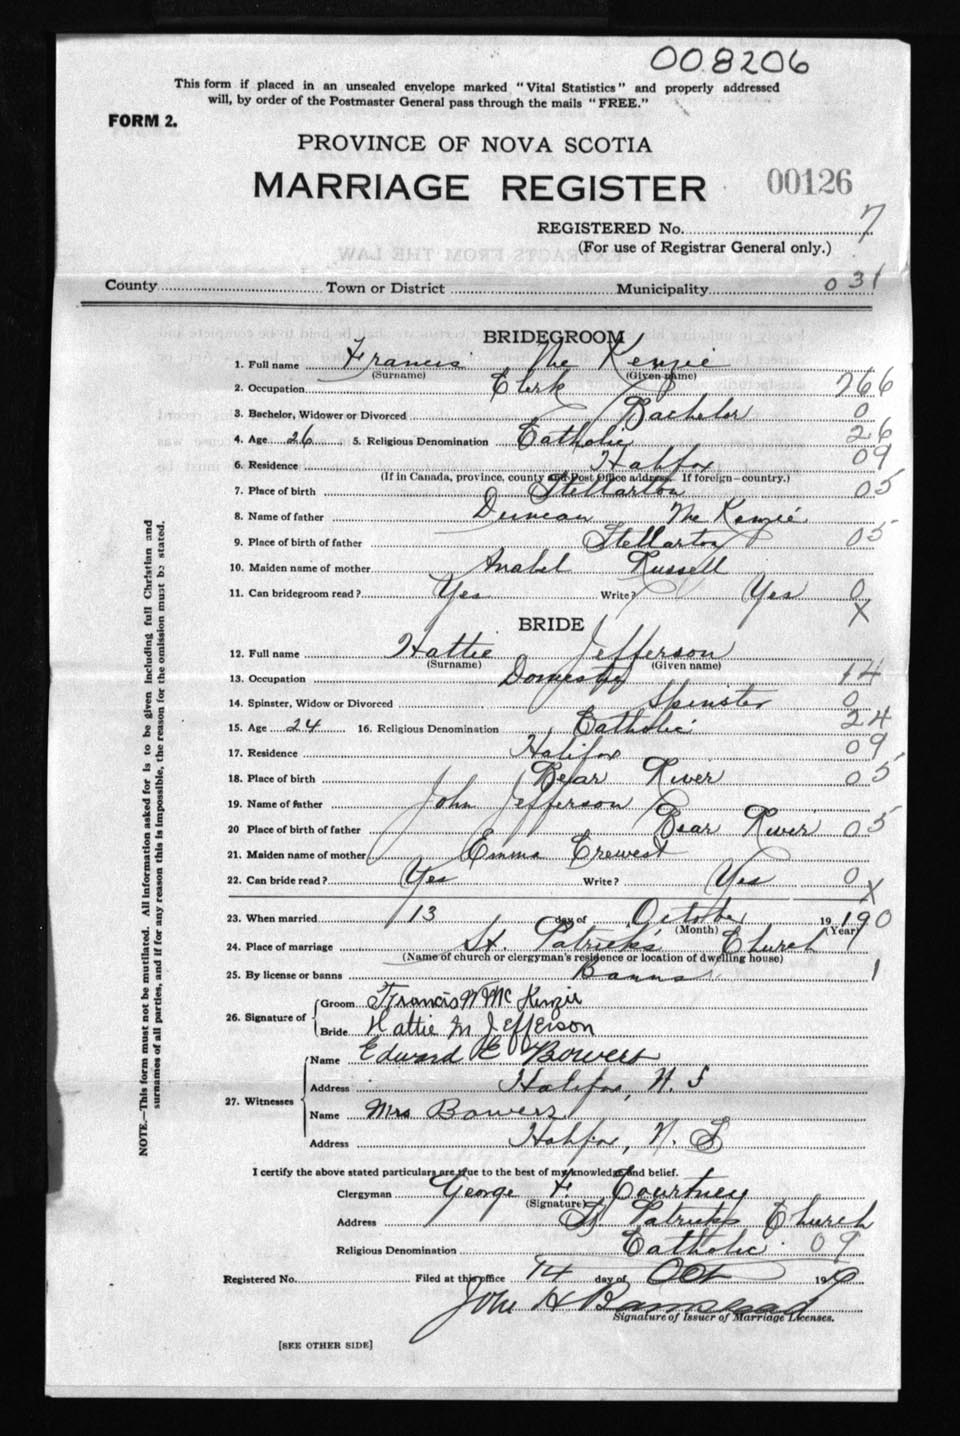 008206
This form if placed in an unsealed envelope marked "Vital Statistics" and properly addressed
will, by order of the Postmaster General pass through the mails "FREE."
FORM 2.
PROVINCE OF NOVA SCOTIA
MARRIAGE REGISTER 00126
REGISTERED No. 7
(For use of Registrar General only.)
County Town or District Municipality 031
BRIDEGROOM
1. Full name Francis Mc Kenzie
(Surname) (Given name)
2. Occupation Clerk 266
3. Bachelor, Widower or Divorced Bachelor 0
4. Age 26 5. Religious Denomination Catholic 26
6. Residence Halifax 09
(If in Canada, province, county and Post Office address. If foreign—country.)
7. Place of birth Stellarton 05
8. Name of father Duncan Mc Kenzie
9. Place of birth of father Stellarton 05
10. Maiden name of mother Anabel Russell
11. Can bridegroom read? Yes Write? Yes 0
X
BRIDE
12. Full name Hattie Jefferson
(Surname) (Given name)
13. Occupation Domestic 14
14. Spinster, Widow or Divorced Spinster 0
15. Age 24 16. Religious Denomination Catholic 24
17. Residence Halifax 09
18. Place of birth Bear River 05
19. Name of father John Jefferson
20 Place of birth of father Bear River 05
21. Maiden name of mother Emma Crewest
22. Can bride read? Yes Write? Yes 0
X
23. When married 13 day of October 19 190
(Month) (Year)
24. Place of marriage St. Patrick's Church
(Name of church or clergyman's residence or location of dwelling house)
25. By license or banns Banns 1
26. Signature of Groom Francis W Mc Kenzie
Bride Hattie M Jefferson
27. Witnesses Name Edward E Bowers
Address Halifax, N. S
Name Mrs Bowers
Address Halifax, N. S
I certify the above stated particulars are true to the best of my knowledge and belief.
Clergyman George F. Courtney
(Signature)
Address St Patricks Church
Religious Denomination Catholic 09
Registered No. Filed at this office 14 day of Oct 19
John H
Signature of Issuer of Marriage Licenses.
[SEE OTHER SIDE]
NOTE.—This form must not be mutilated. All information asked for is to be given including full Christian and
surnames of all parties, and if for any reason this is impossible, the reason for the omission must be stated.